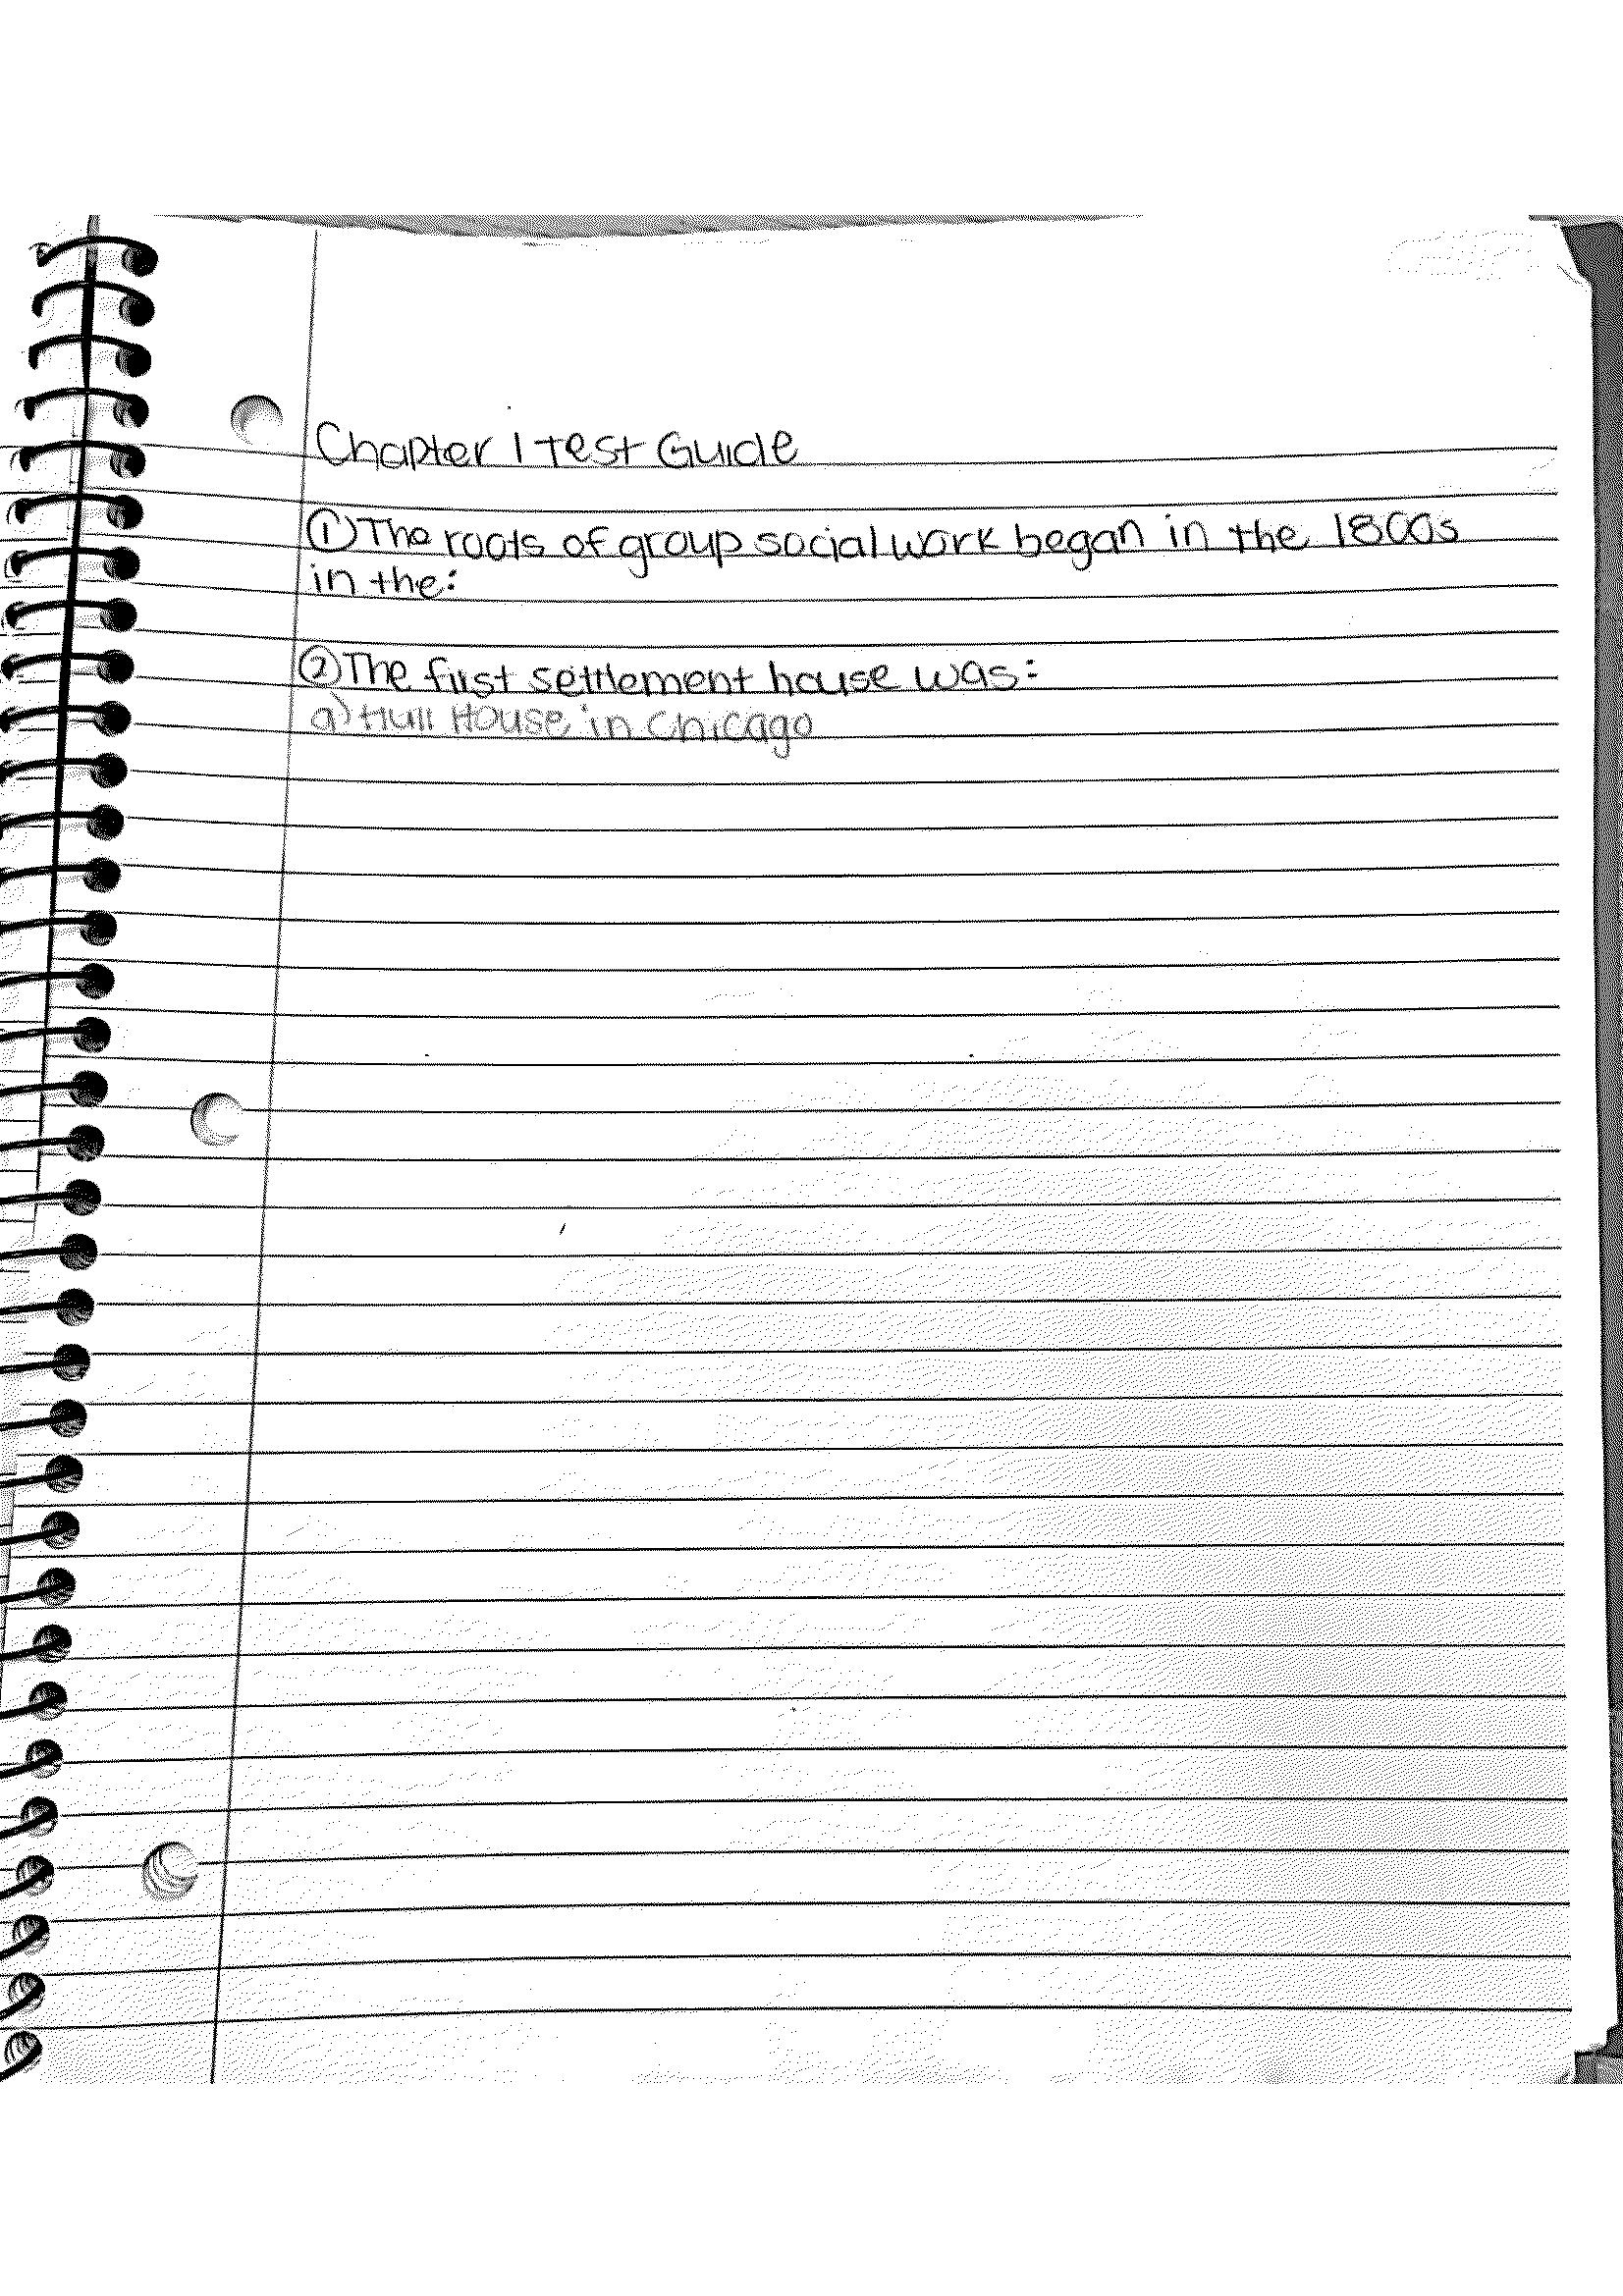 Chapter 1 Test Guide
① The roots of group social work began in the 1800s
in the:
② The first settlement house was:
a) Hull House in Chicago